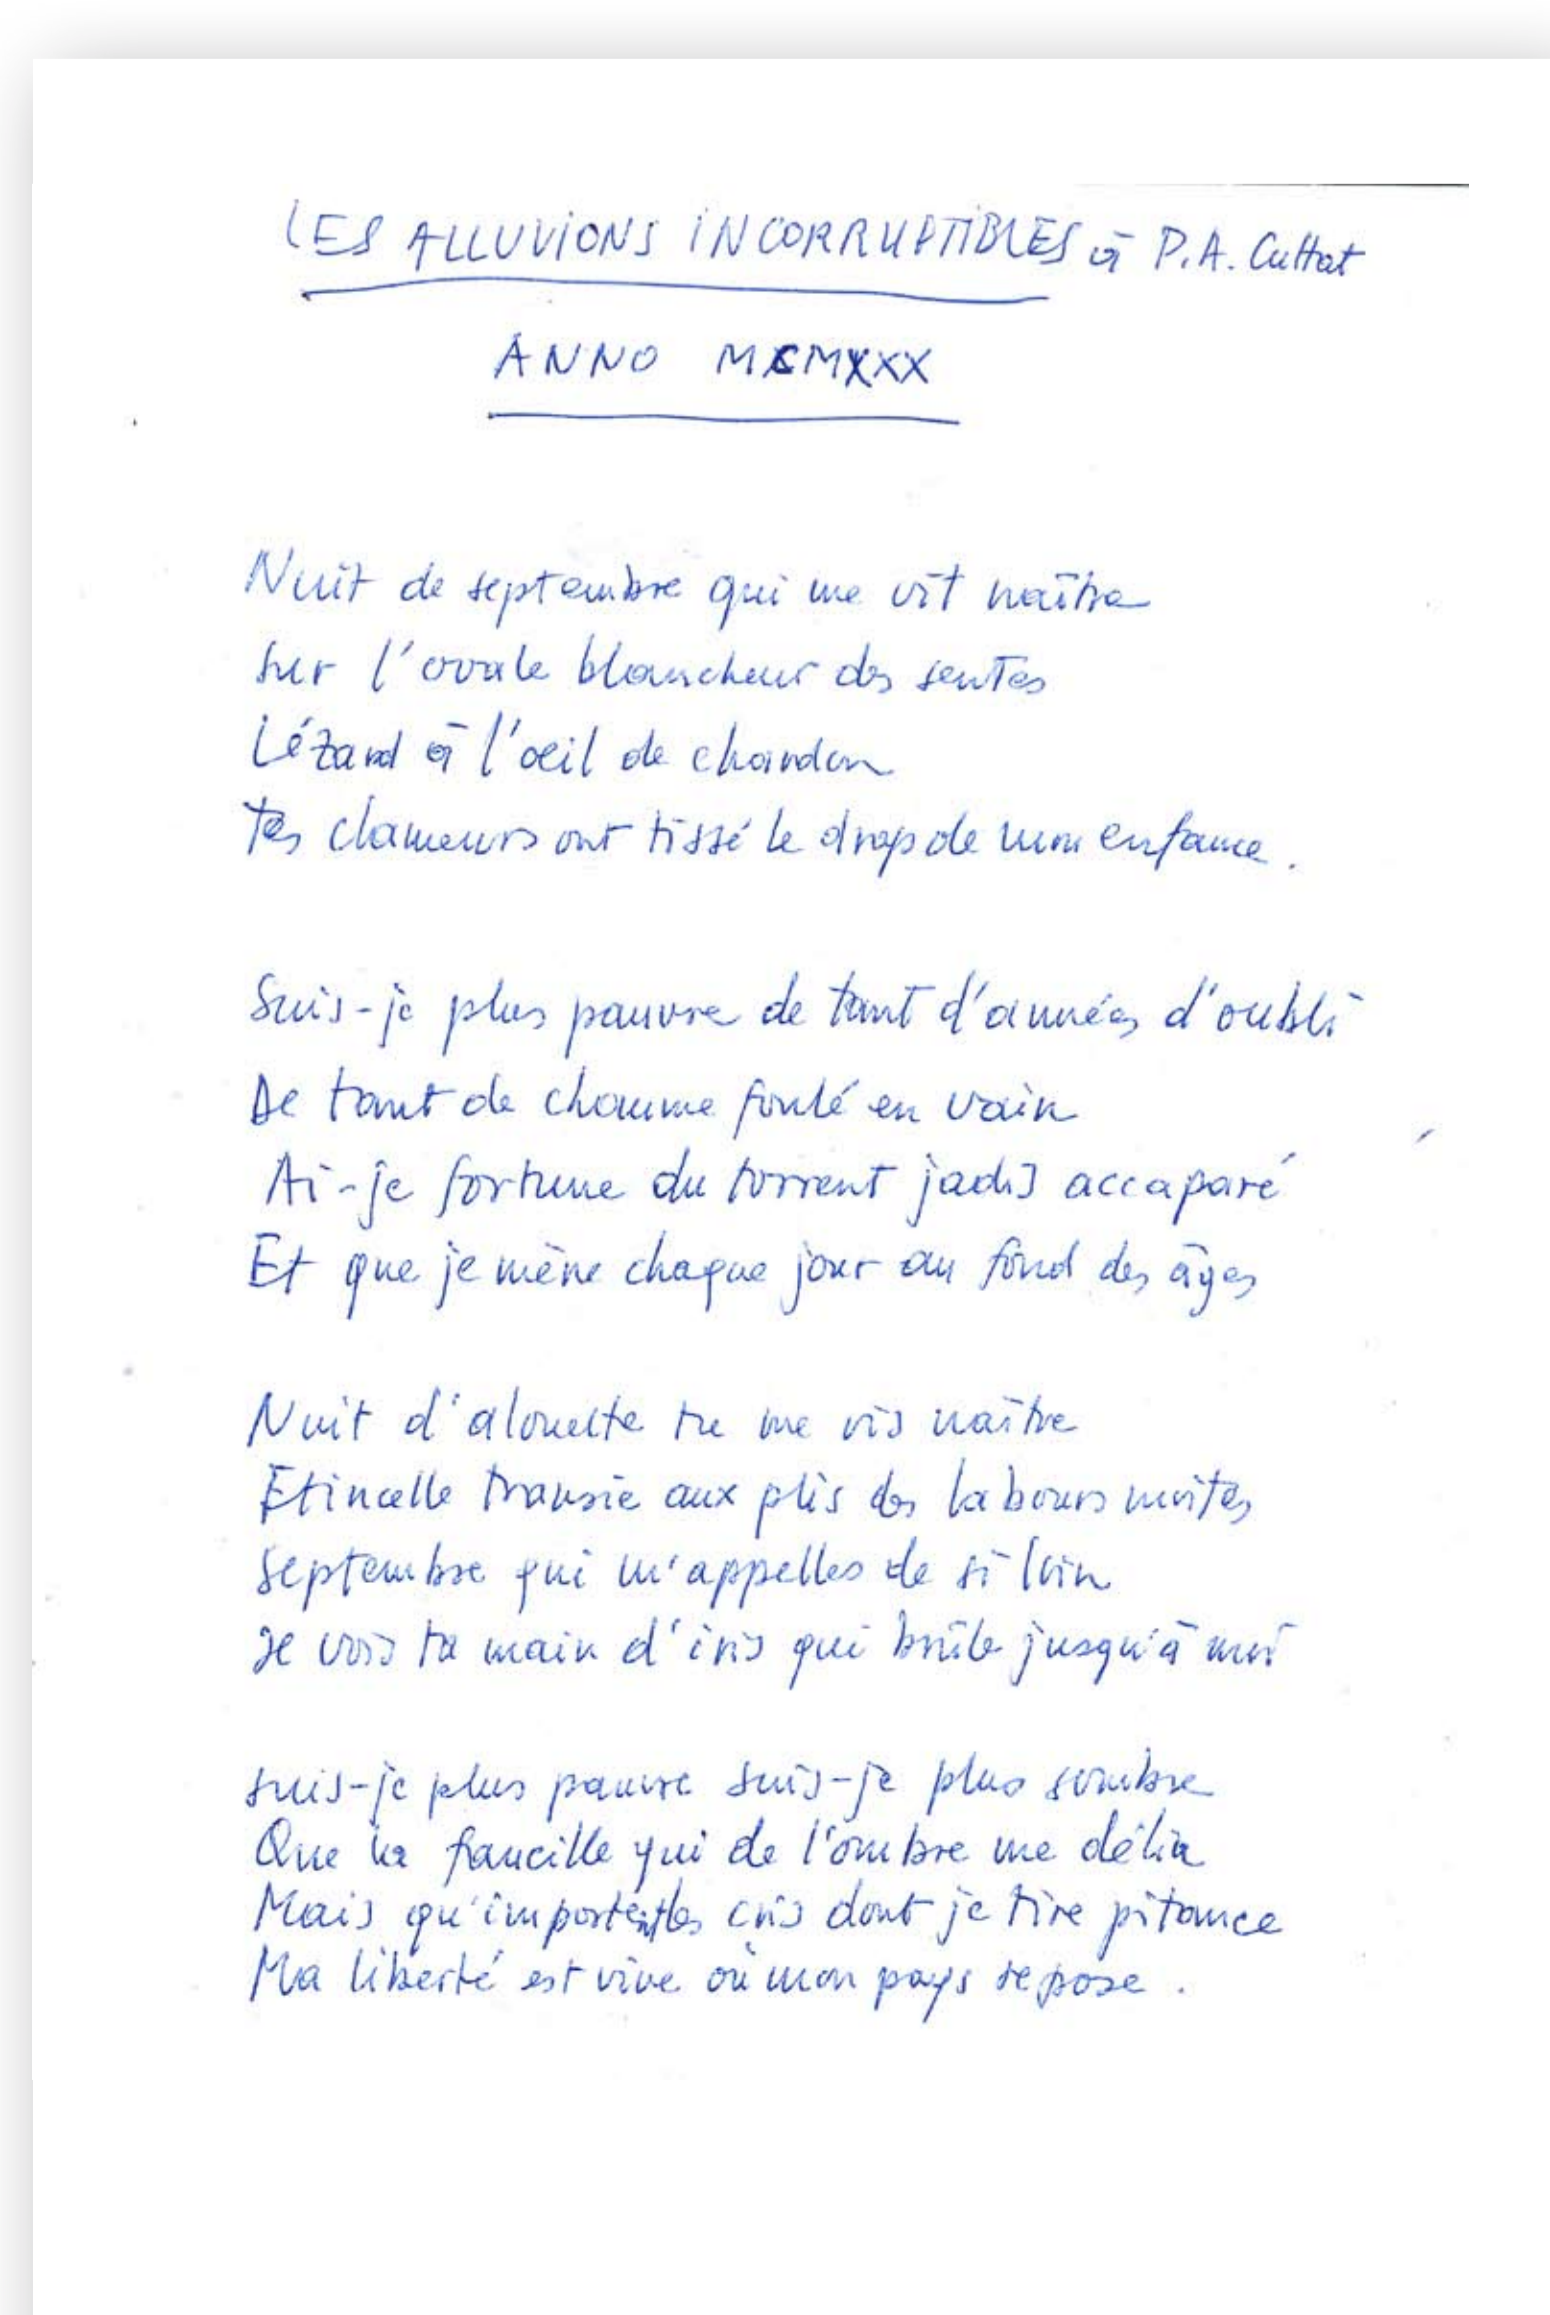 LES ALLUVIONS INCORRUPTIBLES à P.A. Cuttat
ANNO MCMXXX
Nuit de septembre qui me vit naître
Sur l'ovale blancheur des sentes
Lézard à l'oeil de chardon
Tes clameurs ont tissé le drap de mon enfance.
Suis-je plus pauvre de tant d'années d'oubli
De tant de chaume foulé en vain
Ai-je fortune du torrent jadis accaparé
Et que je mène chaque jour au fond des âges
Nuit d'alouette tu me vis naître
Etincelle transie aux plis des labours moites
Septembre qui m'appelles de si loin
Je vois ta main d'iris qui brûle jusqu'à moi
Suis-je plus pauvre suis-je plus sombre
Que la faucille qui de l'ombre me délia
Mais qu'importent les cris dont je tire pitance
Ma liberté est vive où mon pays repose.